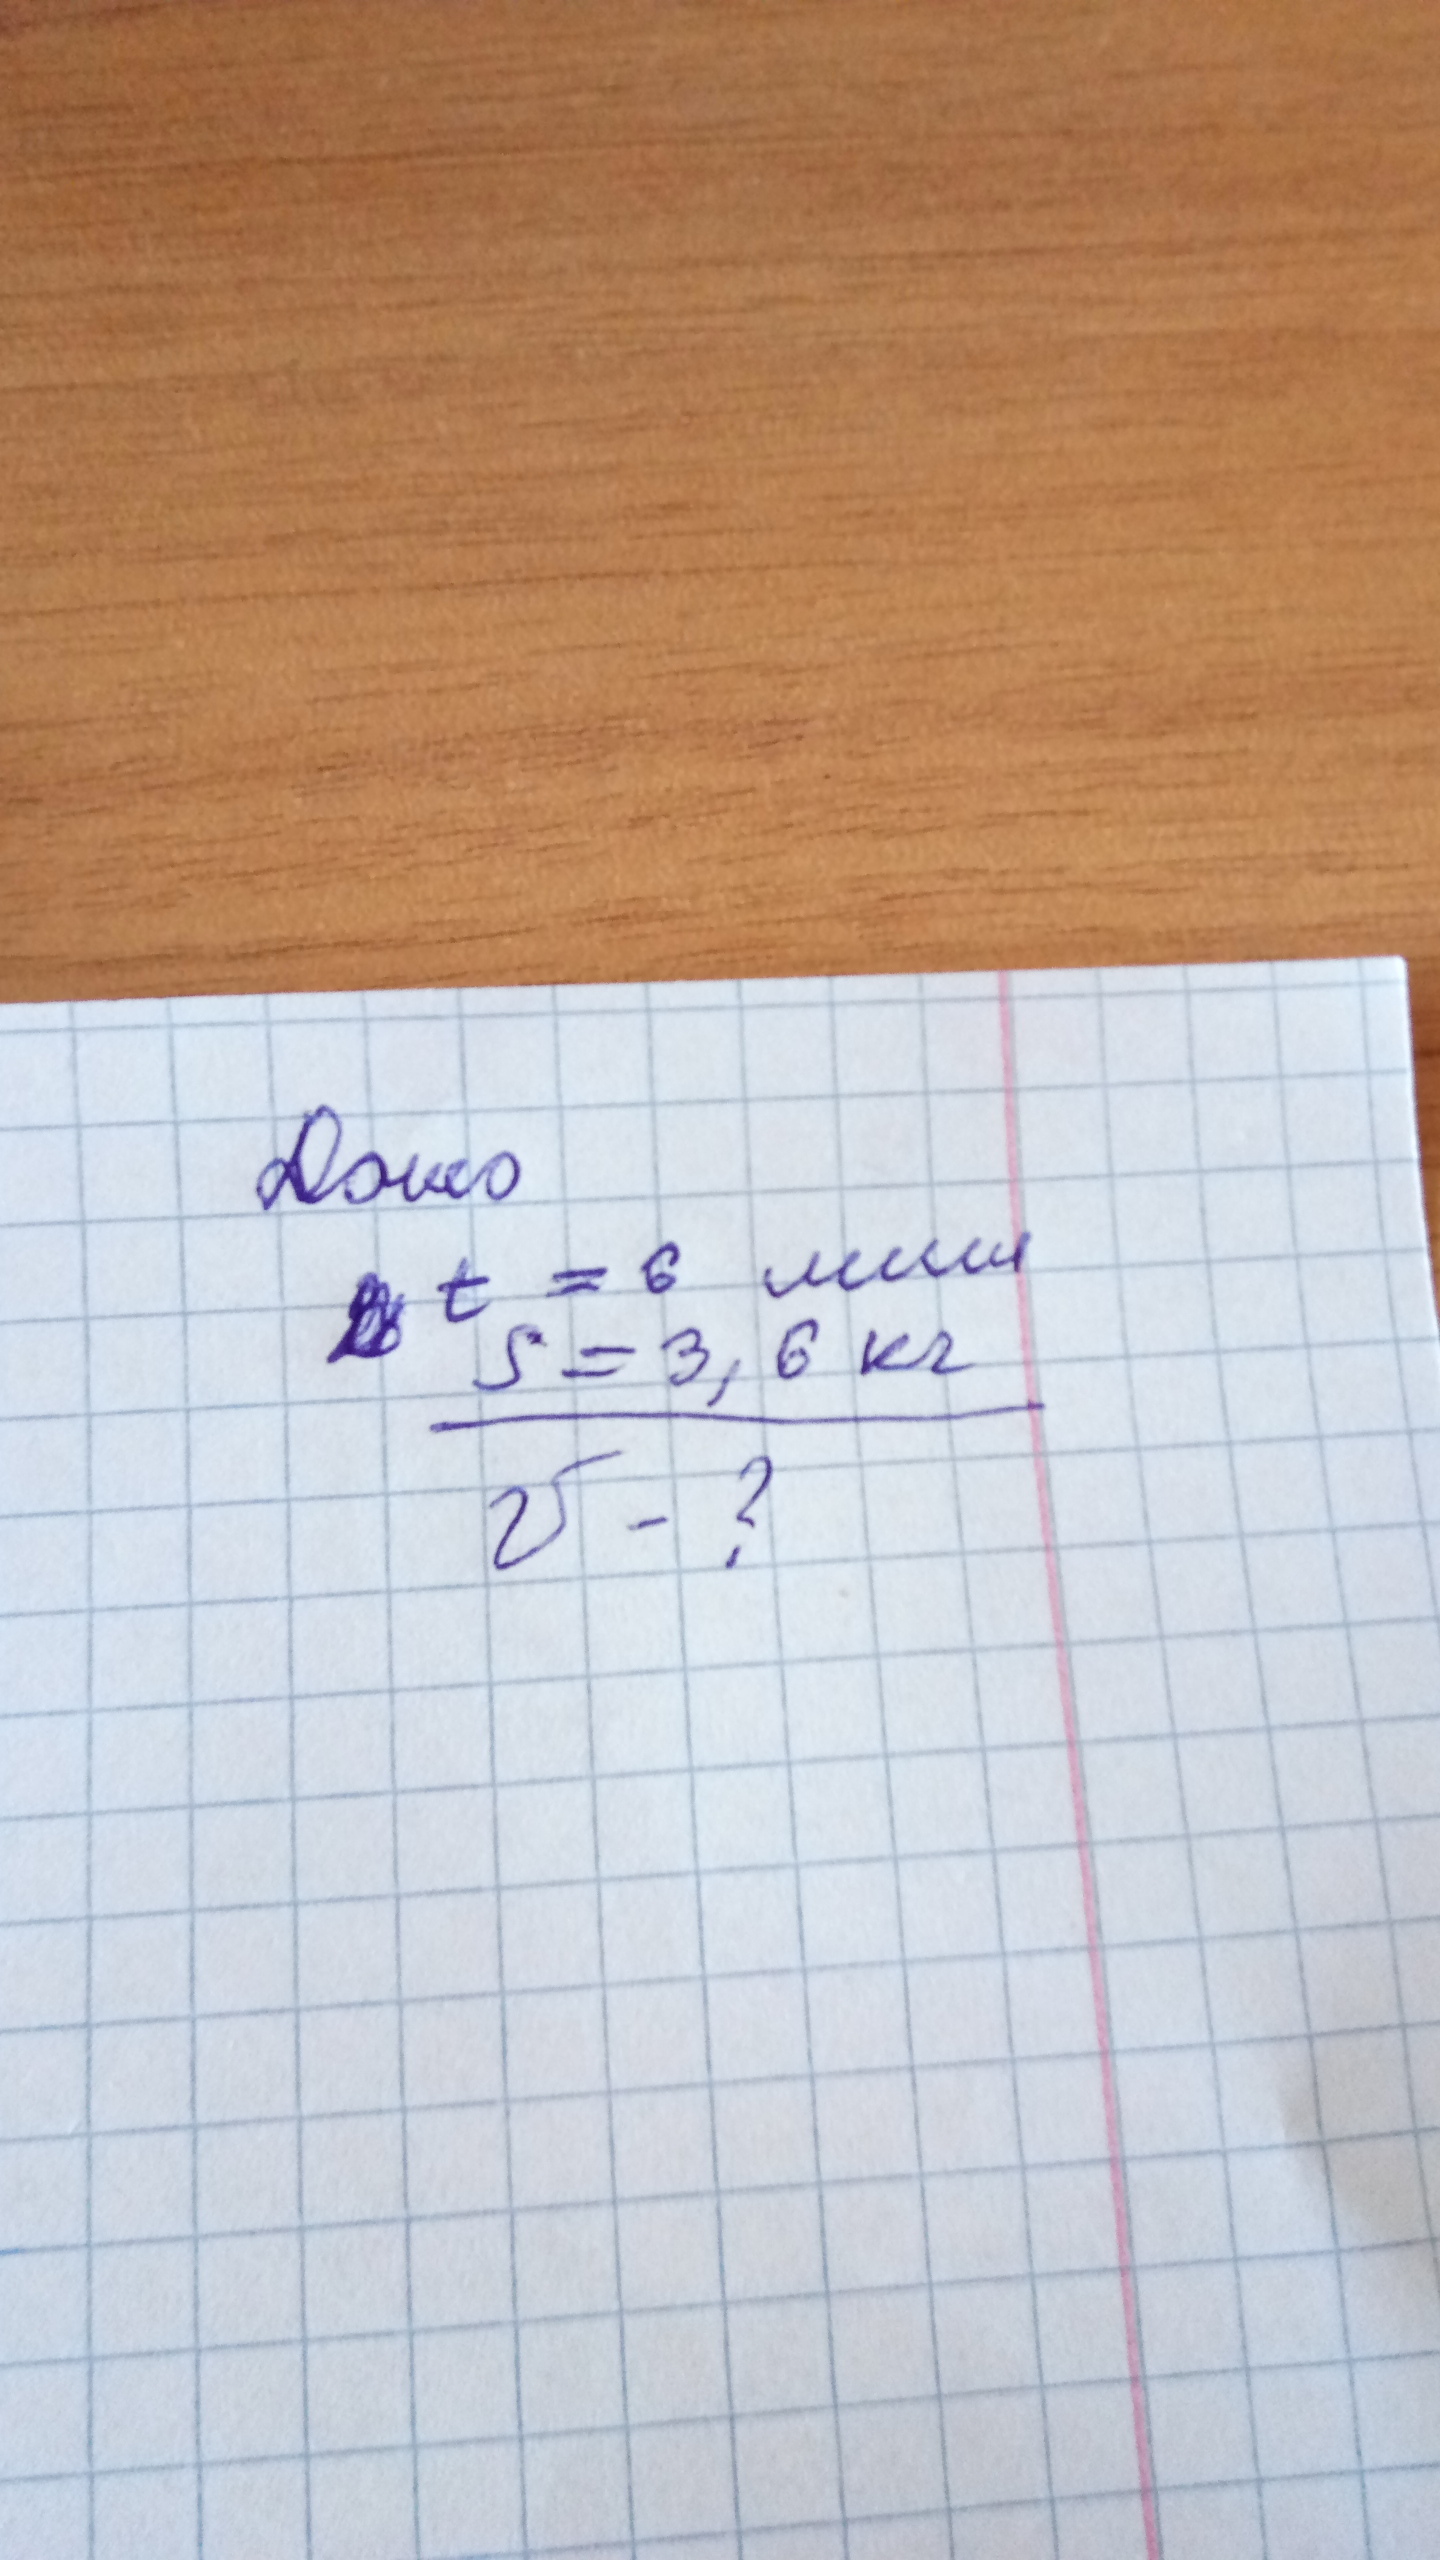 Дано
t = 6 мин
S = 3,6 кг
v - ?